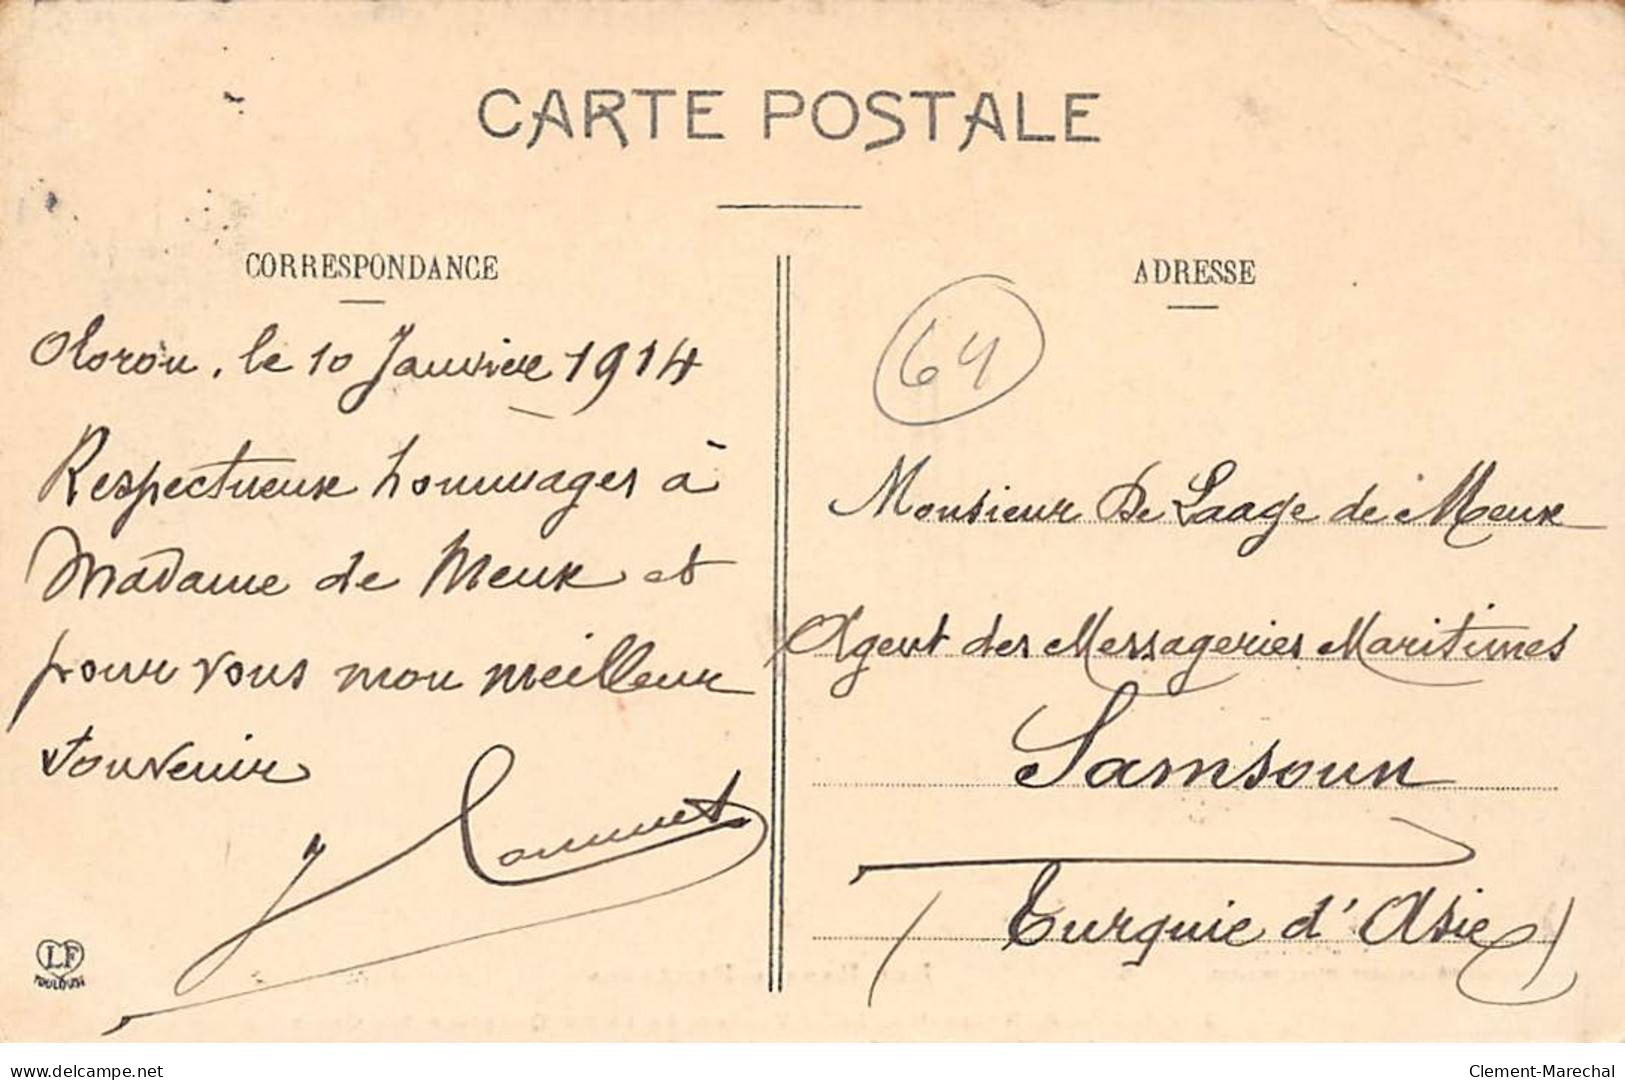 CARTE POSTALE
CORRESPONDANCE
Oloron, le 10 Janvier 1914
Respectueux hommages à
Madame de Meux et
pour vous mon meilleur
souvenir
LF
TOULOUSE
ADRESSE
64
Monsieur De Laage de Meux
Agent des Messageries Maritimes
Samsoun
(Turquie d'Asie)
www.delcampe.net
Clement-Marechal